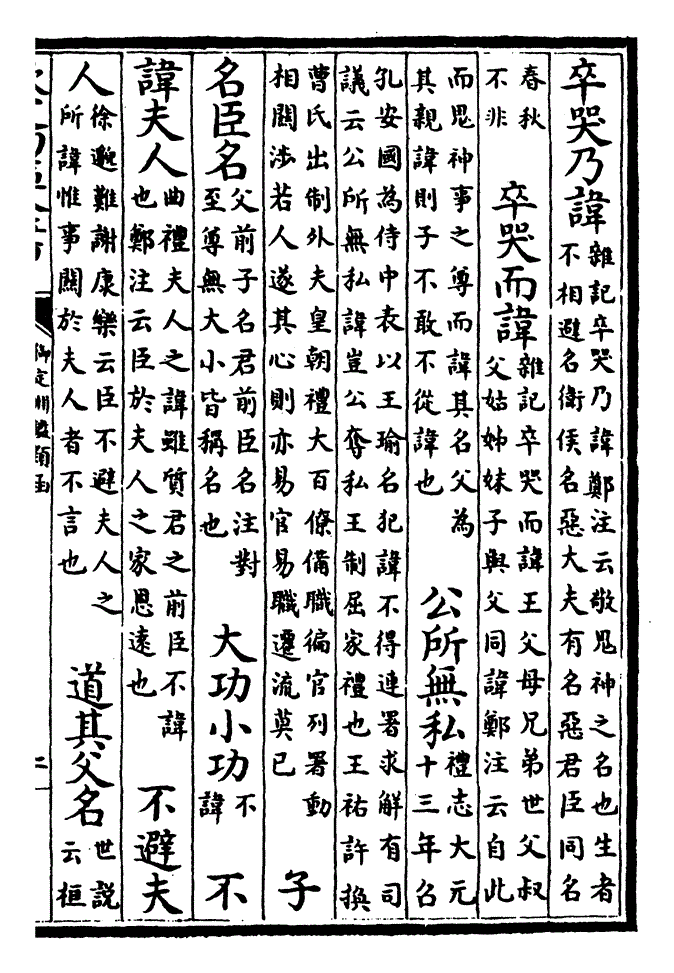 卒哭乃諱雜記卒哭乃諱鄭注云敬鬼神之名也生者
不相避名衛侯名惡大夫有名惡君臣同名
春秋
不非
卒哭而諱雜記卒哭而諱王父母兄弟世父叔
父姑姊妹子與父同諱鄭注云自此
而鬼神事之尊而諱其名父為
其親諱則子不敢不從諱也
公所無私禮志大元
十三年召
孔安國為侍中表以王瑜名犯諱不得連署求解有司
議云公所無私諱豈公奪私王制屈家禮也王祐許換
曹氏出制外夫皇朝禮大百僚備職徧官列署動
相關涉若人遂其心則亦易官易職遷流莫已
子
名臣名父前子名君前臣名注對
至尊無大小皆稱名也
大功小功不
諱
不
諱夫人曲禮夫人之諱雖質君之前臣不諱
也鄭注云臣於夫人之家恩遠也
不避夫
人徐邈難謝康樂云臣不避夫人之
所諱惟事關於夫人者不言也
道其父名世說
云桓
御定淵鑑類函
二